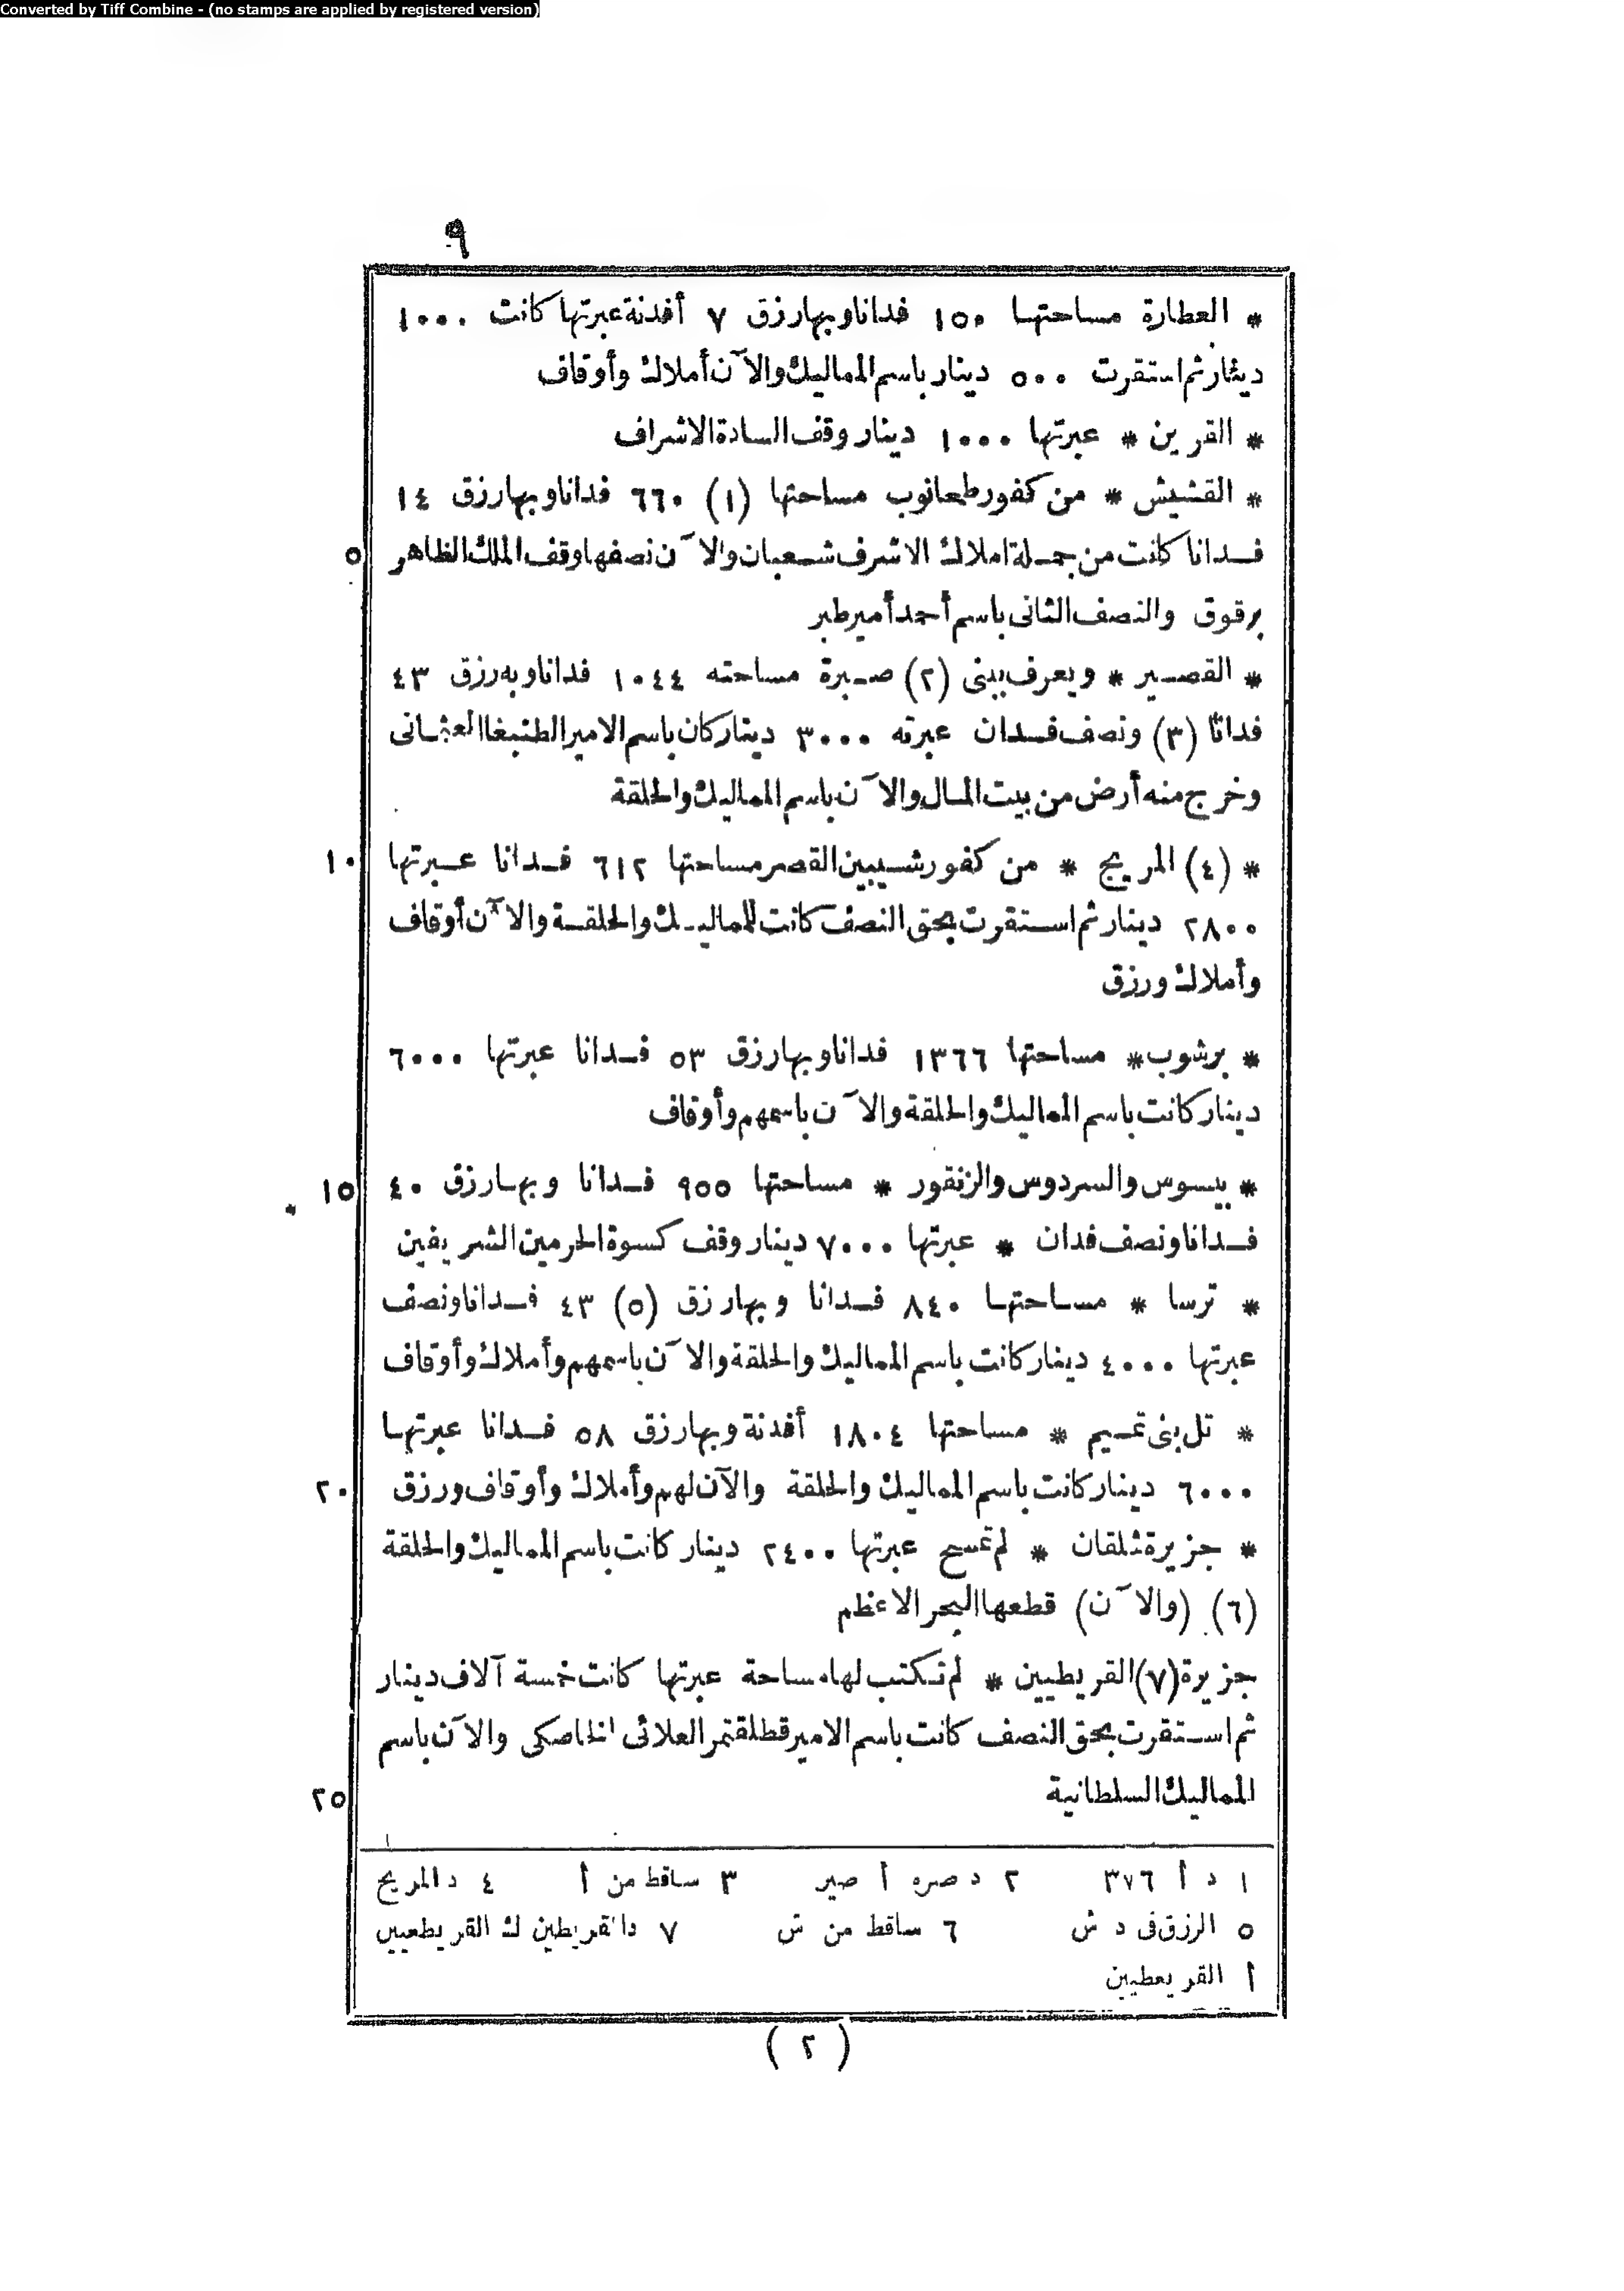 Converted by Tiff Combine - (no stamps are applied by registered version)
٩
* العطارة مساحتها ١٥٠ فدانا وبها رزق ٧ أفدنة عبرتها كانت ١٠٠٠
دينار ثم استقرت ٥٠٠ دينار باسم المماليك والآن أملاك وأوقاف
* القرين * عبرتها ١٠٠٠ دينار وقف السادة الاشراف
* القشيش * من كفور طحانوب مساحتها (١) ٦٦٠ فدانا وبها رزق ١٤
٥ فدانا كانت من جملة املاك الاشرف شعبان والآن نصفها وقف الملك الظاهر
برقوق والنصف الثانى باسم أحمد أمير طبر
* القصير * ويعرف ببنى (٢) صبرة مساحته ١٠٤٤ فدانا وبه رزق ٤٣
فدانا (٣) ونصف فدان عبرته ٣٠٠٠ دينار كان باسم الامير الطنبغا العثمانى
وخرج منه أرض من بيت المال والآن باسم المماليك والحلقة
١٠ * (٤) المريج * من كفور شيبين القصر مساحتها ٦١٢ فدانا عبرتها
٢٨٠٠ دينار ثم استقرت بحق النصف كانت للماليك والحلقة والآن أوقاف
وأملاك ورزق
* برشوب * مساحتها ١٣٦٦ فدانا وبها رزق ٥٣ فدانا عبرتها ٦٠٠٠
دينار كانت باسم المماليك والحلقة والآن باسمهم وأوقاف
١٥ * بيسوس والسردوس والزنقور * مساحتها ٩٥٥ فدانا وبها رزق ٤٠
فدانا ونصف فدان * عبرتها ٧٠٠٠ دينار وقف كسوة الحرمين الشريفين
* ترسا * مساحتها ٨٤٠ فدانا وبها رزق (٥) ٤٣ فدانا ونصف
عبرتها ٤٠٠٠ دينار كانت باسم المماليك والحلقة والآن باسمهم وأملاك وأوقاف
* تل بنى تميم * مساحتها ١٨٠٤ أفدنة وبها رزق ٥٨ فدانا عبرتها
٢٠ ٦٠٠٠ دينار كانت باسم المماليك والحلقة والآن لهم وأملاك وأوقاف ورزق
* جزيرة شلقان * لم تمسح عبرتها ٢٤٠٠ دينار كانت باسم المماليك والحلقة
(٦) (والآن) قطعها البحر الاعظم
جزيرة (٧) القريطيين * لم تكتب لها مساحة عبرتها كانت خمسة آلاف دينار
ثم استقرت بحق النصف كانت باسم الامير قطلقتمر العلائى الخاصكى والآن باسم
٢٥ المماليك السلطانية
١ د أ ٣٧٦ ٢ د صره أ صير ٣ ساقط من أ ٤ د المريج
٥ الرزق فى د ش ٦ ساقط من ش ٧ د القريطين ك القريطعيين
أ القريعطيين
(٢)